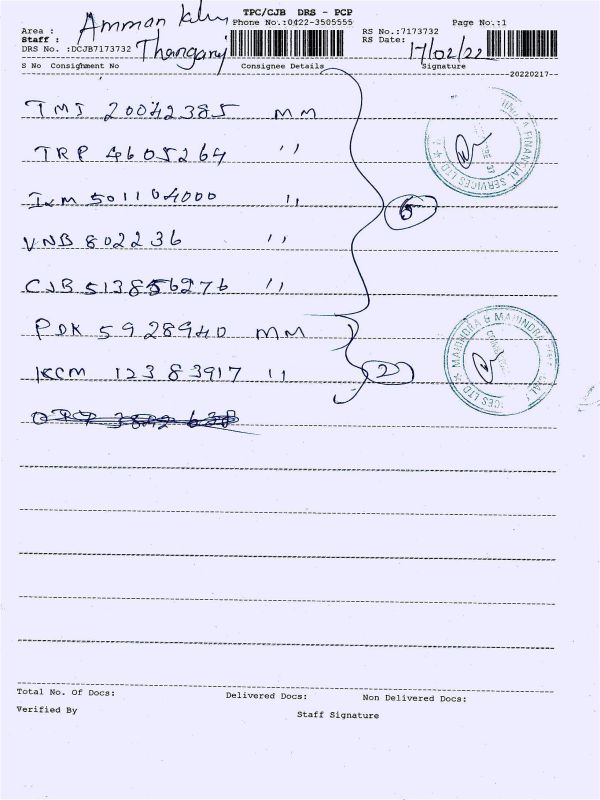 TPC/CJB DRS - PCP
Area : Amman
Phone No.:0422-3505555
Page No.:1
Staff :
RS No.:7173732
DRS No. :DCJB7173732
RS Date: 17/02/22
S No Consignment No Consignee Details Signature
20220217
TMJ 20042385 MM
TRP 4605264 ''
501104000 ''
VNB 802236 ''
CJB 513856276 ''
PDK 5928940 MM
KCM 12383917 ''
2
MAHINDRA & MAHINDRA
FINANCIAL SERVICES LTD
Total No. Of Docs: Delivered Docs: Non Delivered Docs:
Verified By Staff Signature